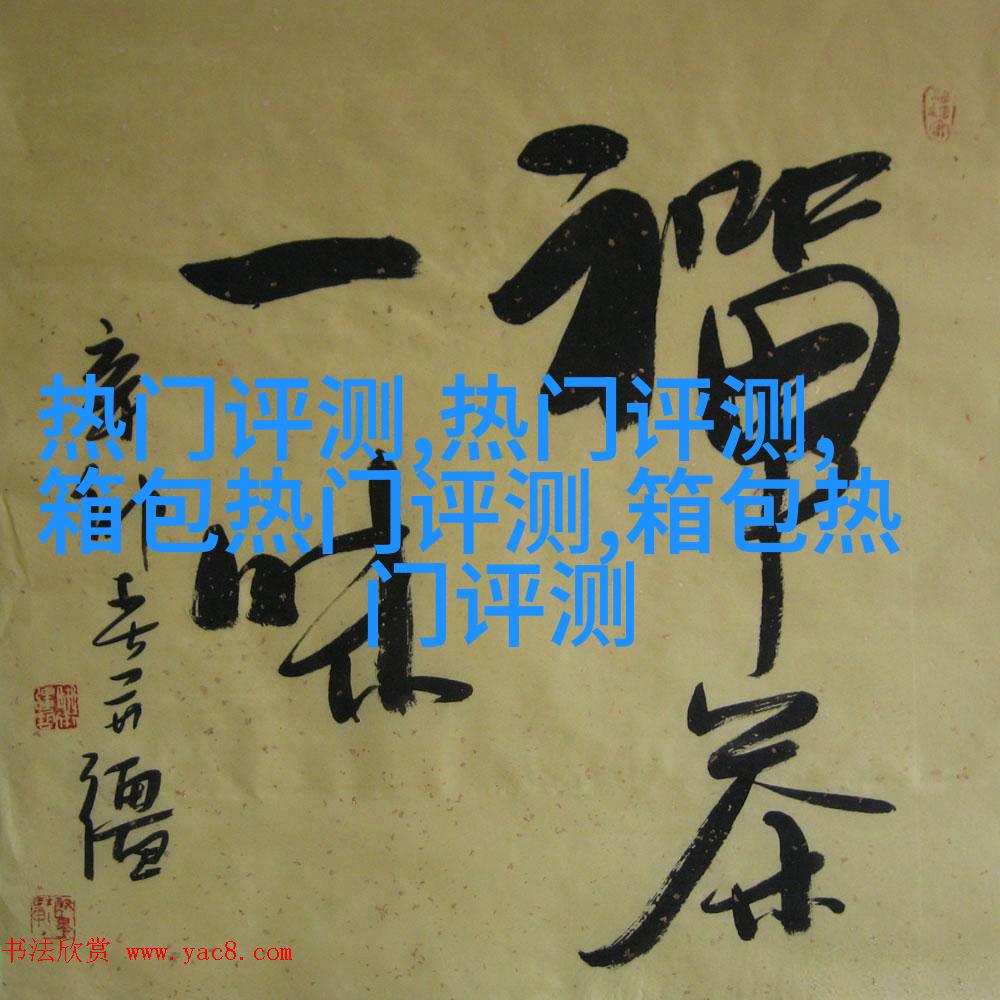 禪茶
一味
热门评测,热门评测,
箱包热门评测,箱包热
门评测
书法欣赏 www.yac8.com